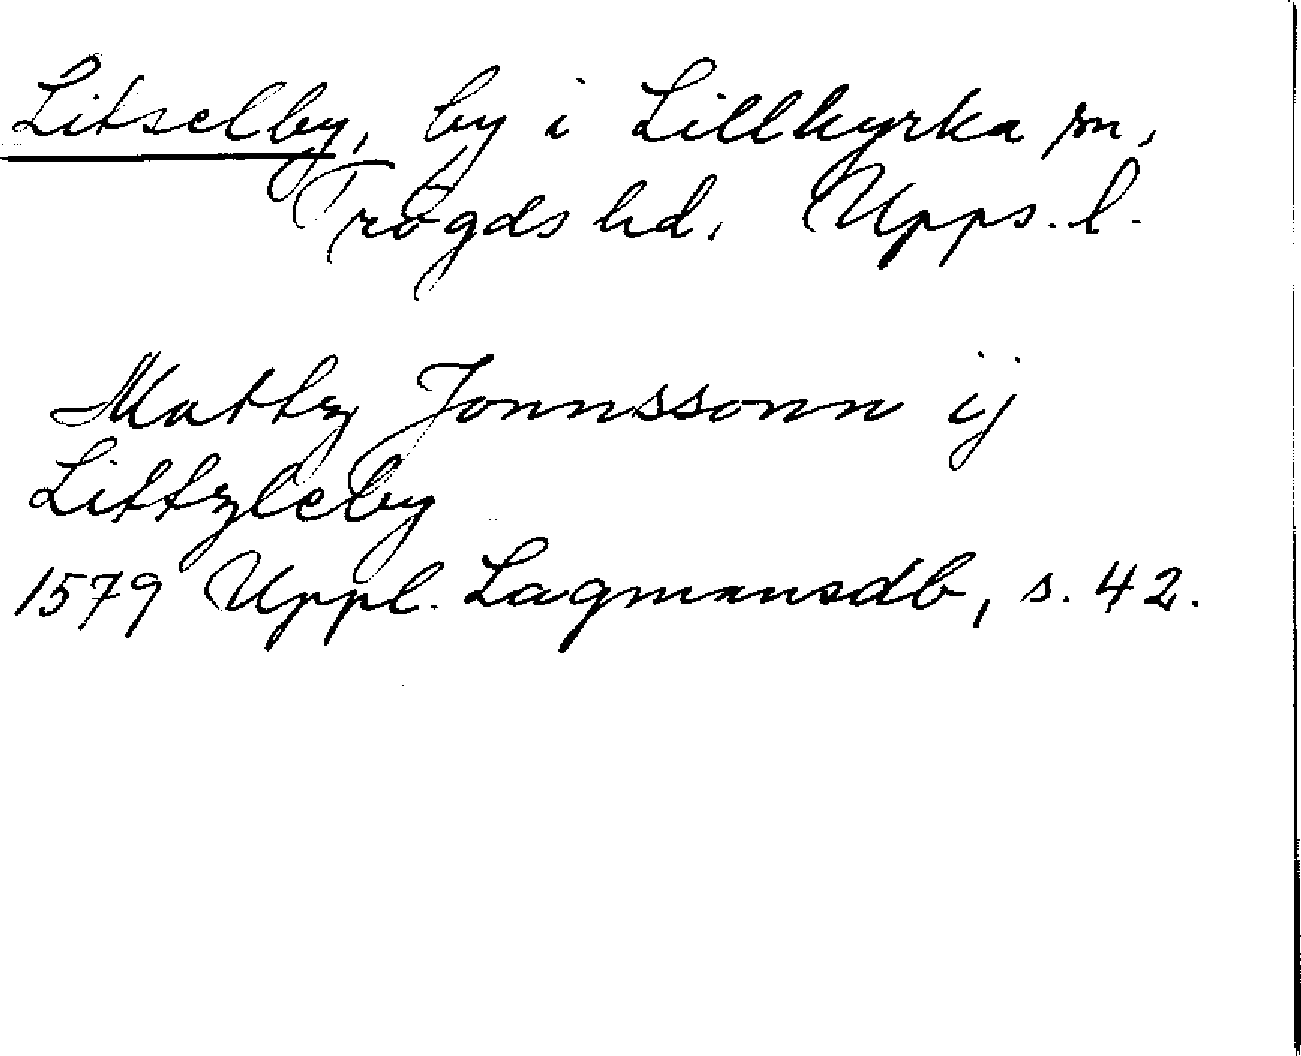 Litselby, by i Lillkyrka sn,
Trögds hd. Upps. l.
Mattz Jonnssonn ij
Littzleby
1579 Uppl. Lagmansdb, s. 42.